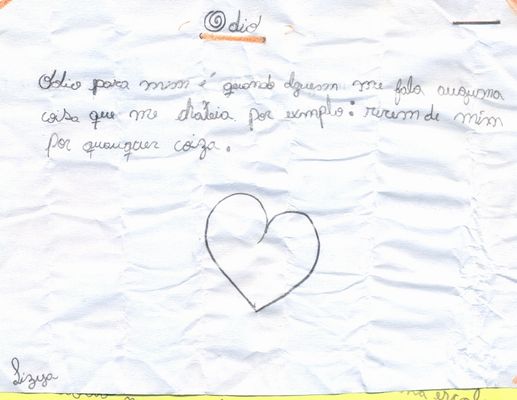 Odio
Odio para mim é quando alguem me fala auguma
coisa que me chateia por exmplo: rirem de mim
por quauquer coiza.